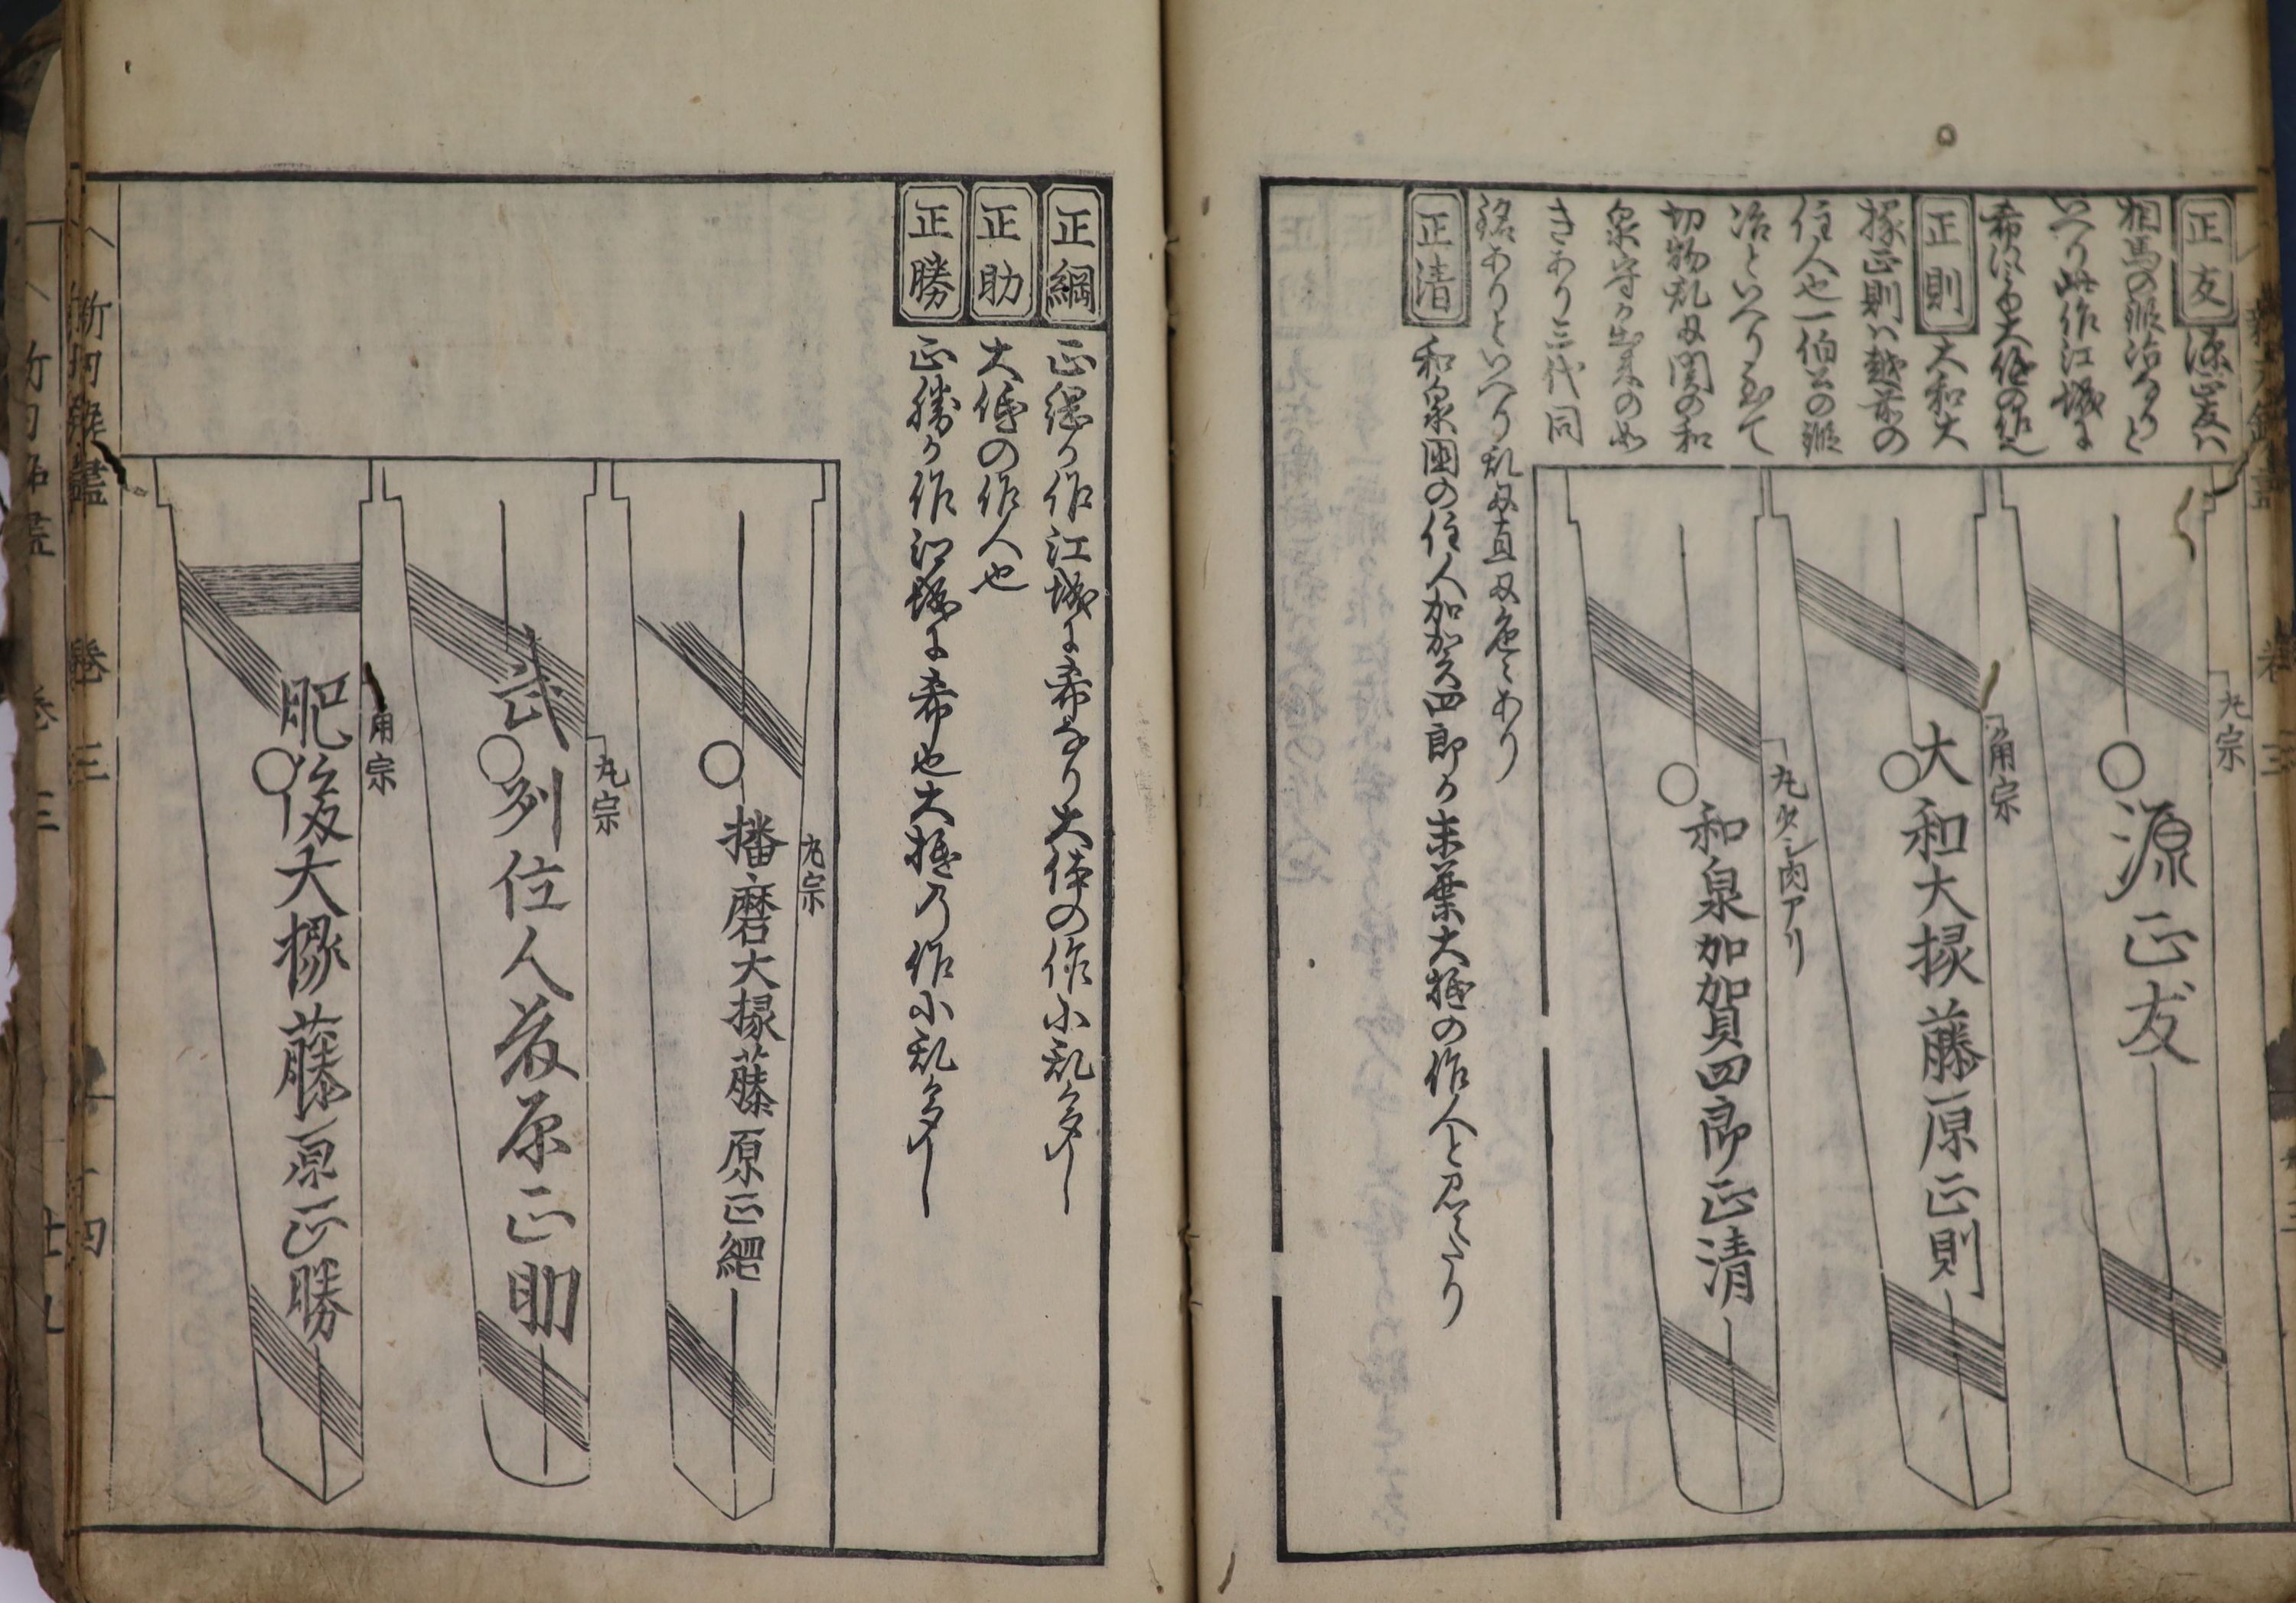 正友
源正友ハ
相馬の鍛冶なりと
いへり此作江城に
希なり大低の作也
正則
大和大
掾正則ハ越前の
住人也一伯公の鍛
冶といへり
切物乱刃関の和
泉守か出来の如
きあり三代同
銘ありといへり乱刃直刃色〻あり
正清
和泉国の住人加賀四郎か末葉大抵の作人と見へたり
丸宗
源正友
角宗
大和大掾藤原正則
丸タシ肉アリ
和泉加賀四郎正清
正綱
正綱か作江城に希なり大体の作小乱多し
正助
大低の作人也
正勝
正勝か作江城に希也大抵乃作小乱多し
丸宗
播磨大掾藤原正綱
丸宗
武列位人藤原正助
角宗
肥後大掾藤原正勝
卷三